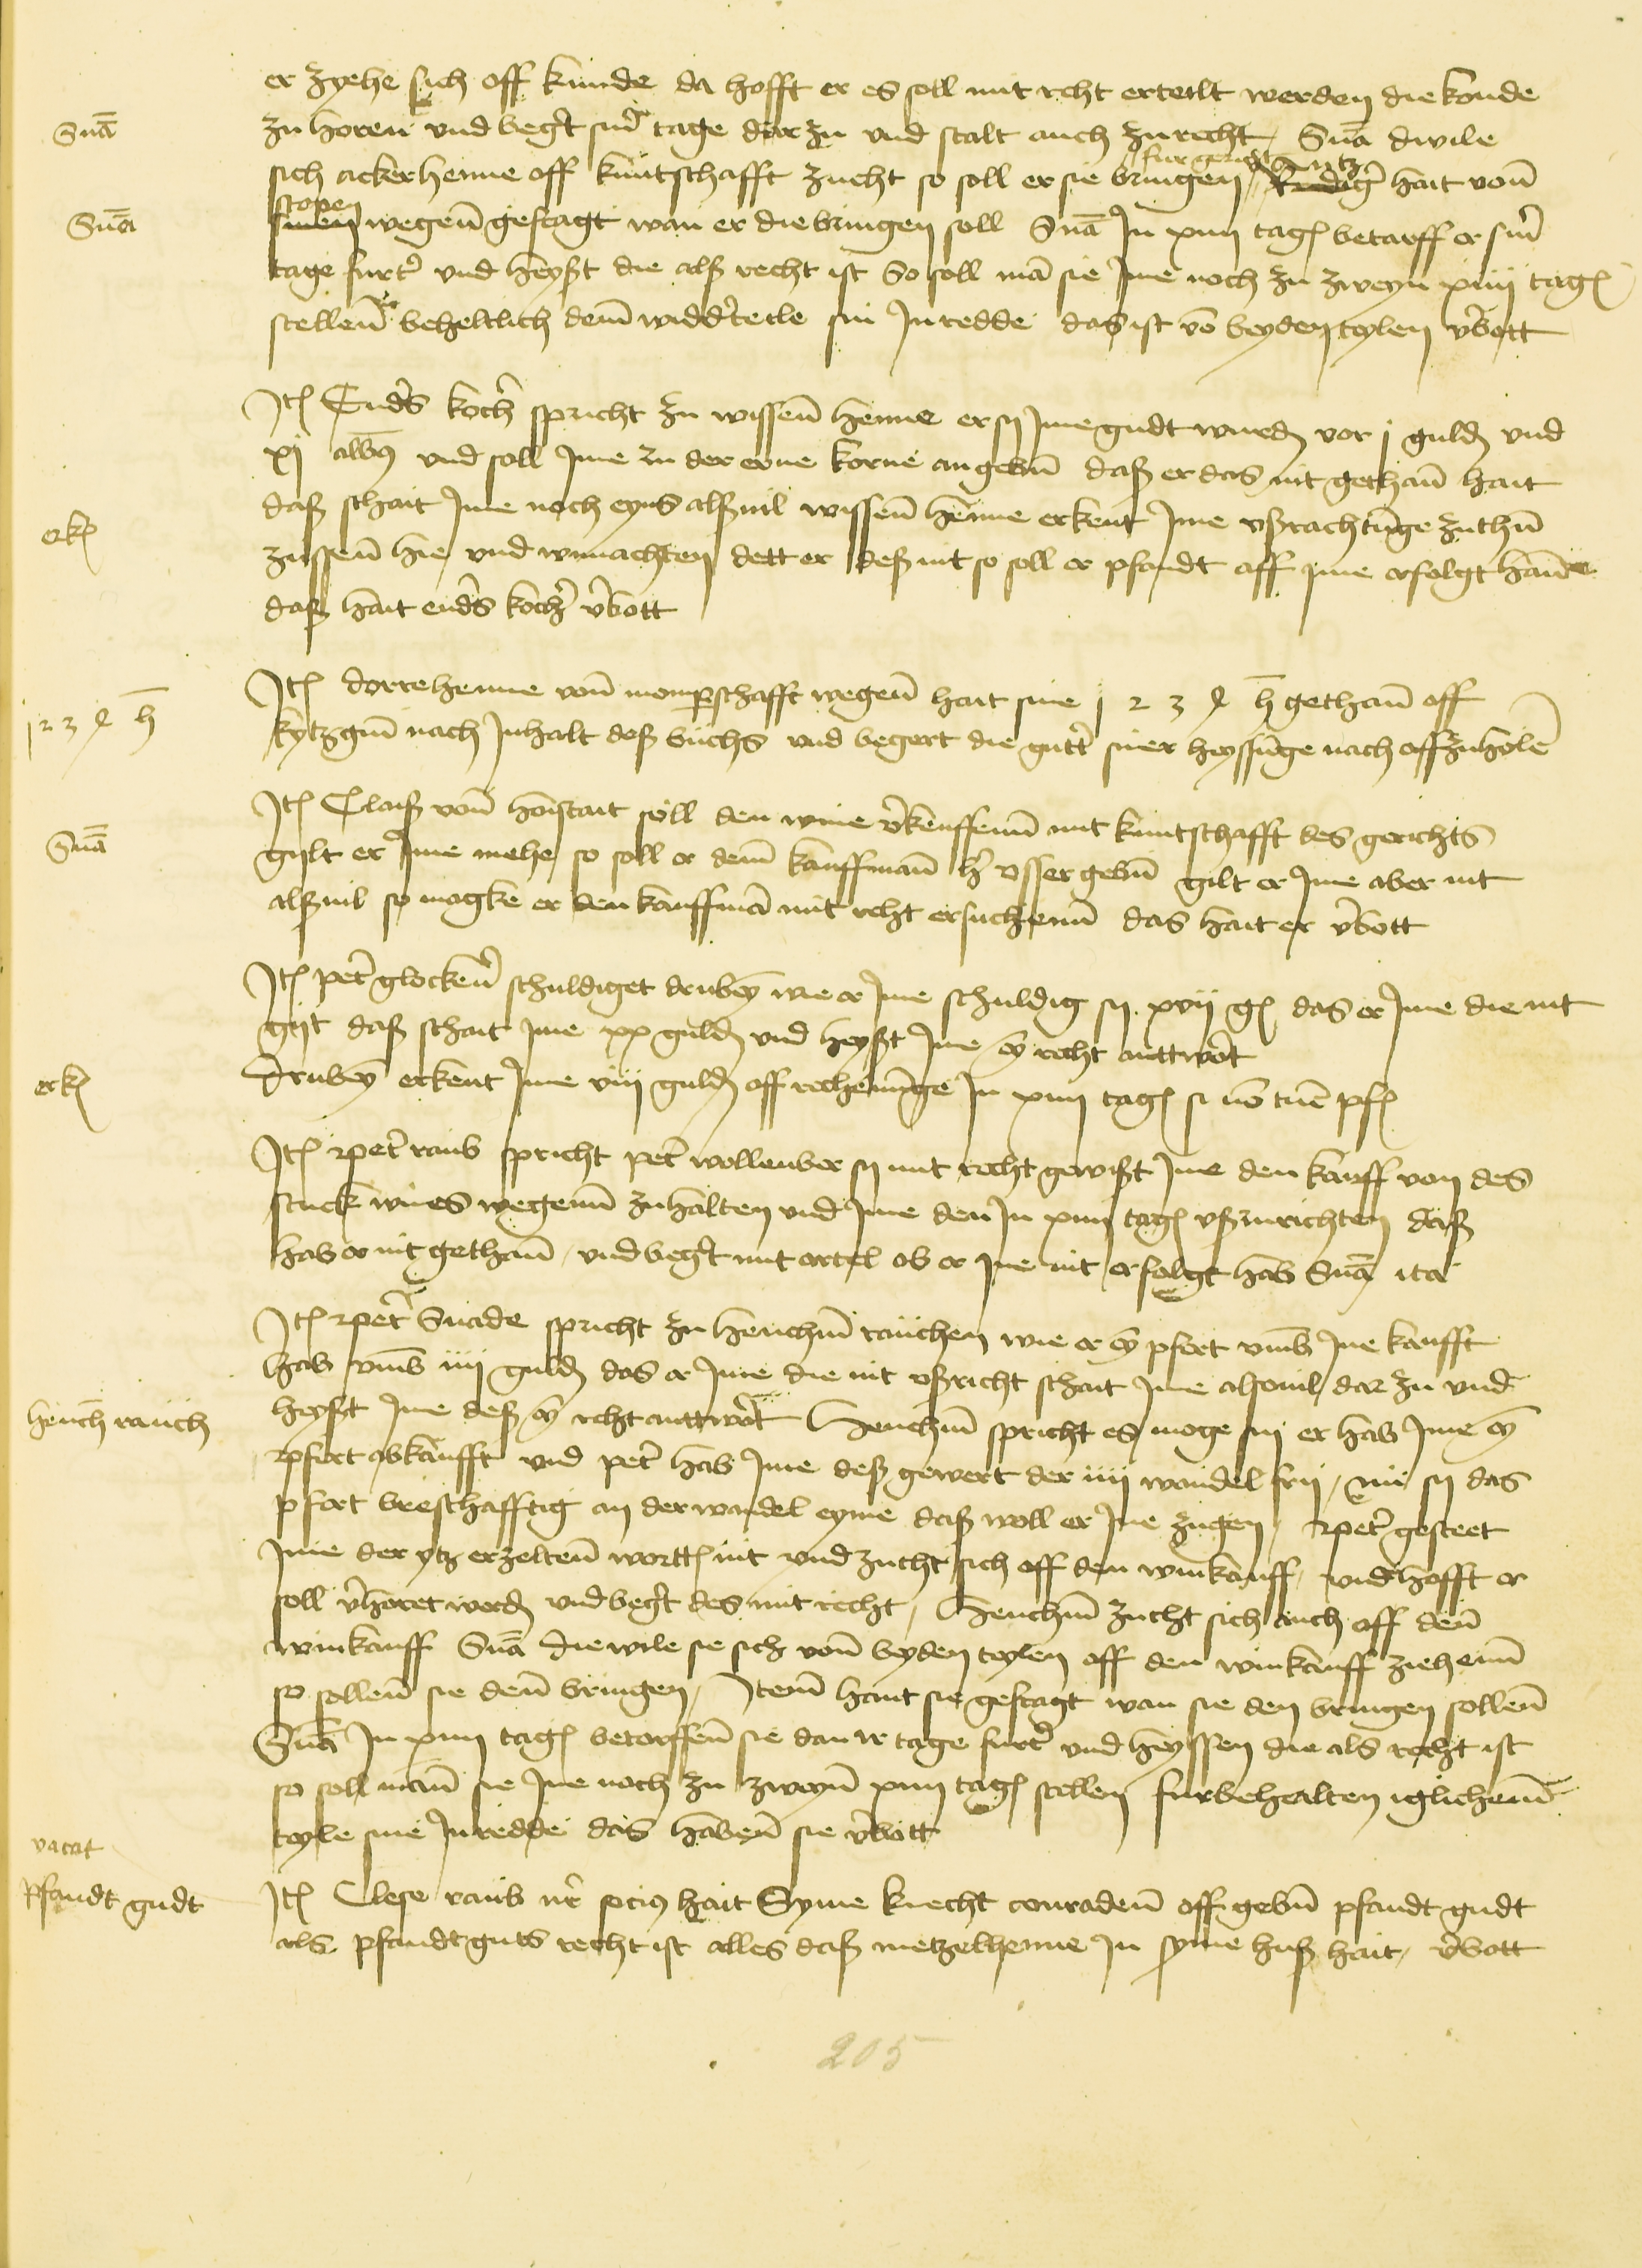 er zyehe sich off kunde da hofft er es soll mit recht erteilt werden die konde
Sna
zu horen und begert siner tage dar zu und stalt auch zu recht, Sna diwile
furgenant Contz
sich ackerhenne off kuntschafft zucht so soll er sie bringen, hait von
stopen
Sna
sinen wegen gefragt wan er die bringen soll Sna In xiiii tagen betarff er siner
tage furter und heyßt die alß recht ist So soll man sie Ime noch zu zweyn xiiii tagen
stellen beheltlich dem widderteile sin Inredde das ist von beyden teylen verbott
Item Enders kocher spricht zu wissen henne er sy Ime gudt wurden vor j gulden und
xj albus und soll Ime zu der erne korne angeben daß er das nit gethan hait
daß schait Ime noch eyns alßvil wissen henne erkent Ime ußrachtunge zuthun
erk
zussen hie und winachten dett er deß nit so soll er pfandt off ime erfolgt han
daß hait enders kocher verbott
Item dorrehenne von momperschafft wegen hait sine 1 2 3 4 h gethan off
1 2 3 4 h
nach Inhalt deß buchs und begert die gutter siner heyssunge nach offzuholen
Item Clais von soll den wine verkeuffen mit kuntschafft des gerichts
Sna
gylt er Ime mehe so soll er dem kauffman her usser geben gilt er Ime aber nit
alßvil so mogke er den kauffman mit recht ersuchen das hait er verbott
Item peter glockener schuldiget druben wie er Ime schuldig sy xvii g das er Ime die nit
gijt daß schait Ime xx gulden und heyßt Ime eyn recht anttwort
erk
Druben erkent Ime viii gulden off rechenunge In xiiii tagen si non tunc pf
Item peter raub spricht peter wollenber sy mit recht gewißt Ime den kauff von des
stuck wines wegen zuhalten und Ime den In xiiii tagen ußzurichten daß
hab er nit gethan, und begert mit ortel ob er Ine nit erfolgt hab Sna ita
Item peter Snade spricht zu Henchin rauchen wie er eyn pfert umb Ine kaufft
hab umb iiii gulden das er Ime die nit ußricht schait Ime alsovil dar zu und
Hench rauch
heyscht Ime deß eyn recht anttwort Henchin spricht es moge sin er hab Ime eyn
pfert abkaufft und peter hab Ime deß gewert der iiii wandel frii, nu sy das
pfert breschafftig an der wandel eyme daß woll er Ine zugen, peter gesteet
Ime der ytz erzelten wortten nit und zucht sich off den winkauff, und hofft er
soll verhoret werden und begert des mit recht, Henchin zucht sich auch off den
winkauff Sna diewile sie sich von beyden teylen off den winkauff ziehenn
so sollen sie den bringen, Item hant sie gefragt wan sie den bringen sollen
Sna In xiiii tagen betorffen sie dan ir tage furter und heyssen die als recht ist
so soll man sie Ine noch zu zweyn xiiii tagen stellen furbehalten iglichem
teyle sine Inredde das haben sie verbott
vacat
Pfandt gudt
Item Clese raub nr socius hait Syme knecht conraden off geben pfandt gudt
als pfandt guts recht ist alles daß metzelhenne In syme huß hait, verbott
205